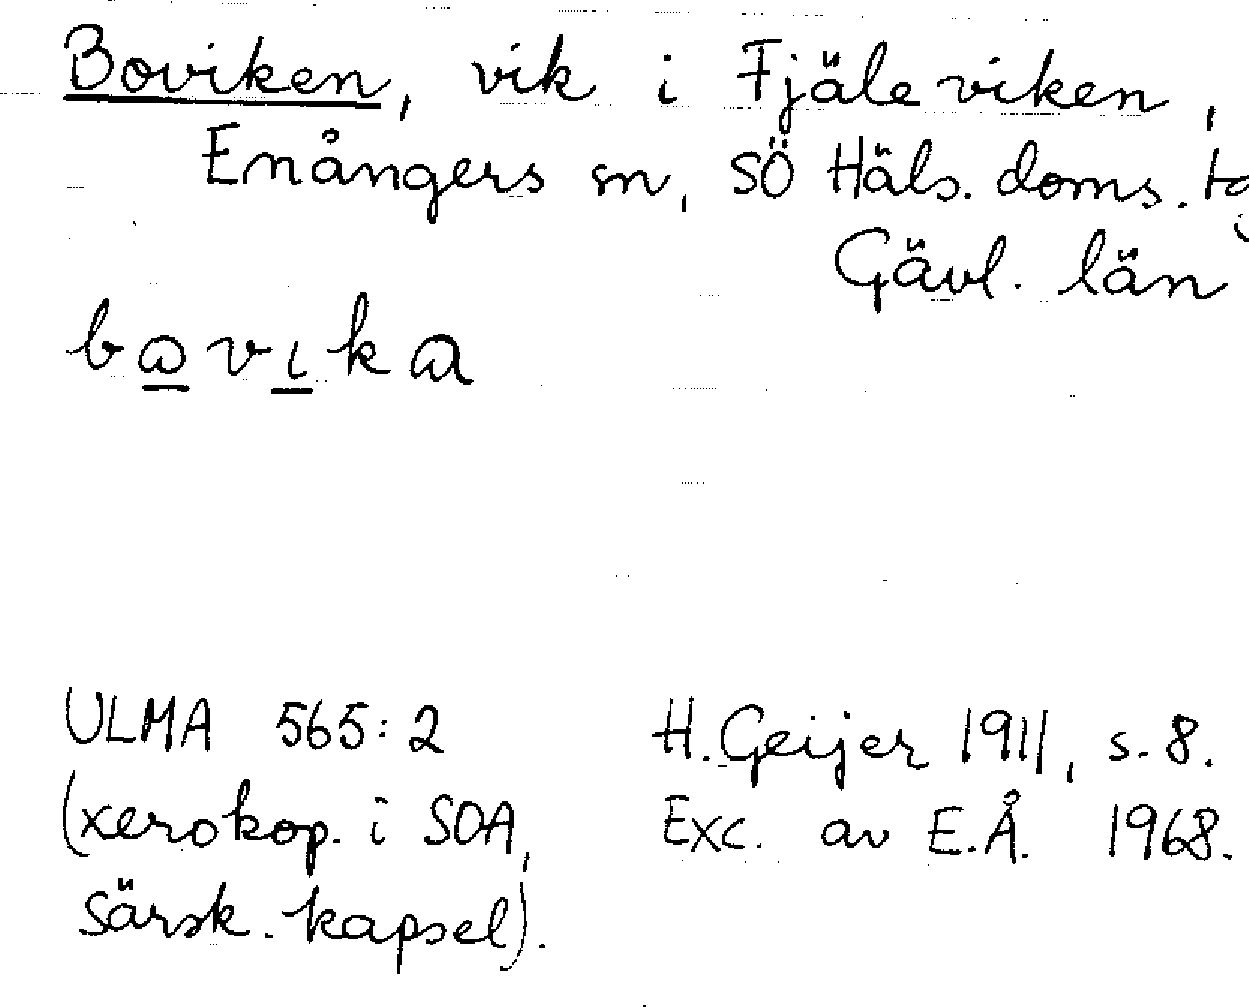 Boviken, vik i Fjäleviken,
Enångers sn, SÖ Häls. doms.
Gävl. län
bωvιkα
ULMA 565:2 H. Geijer 1911, s. 8.
(xerokop. i SOA, Exc. av E.Å. 1968.
särsk. kapsel).